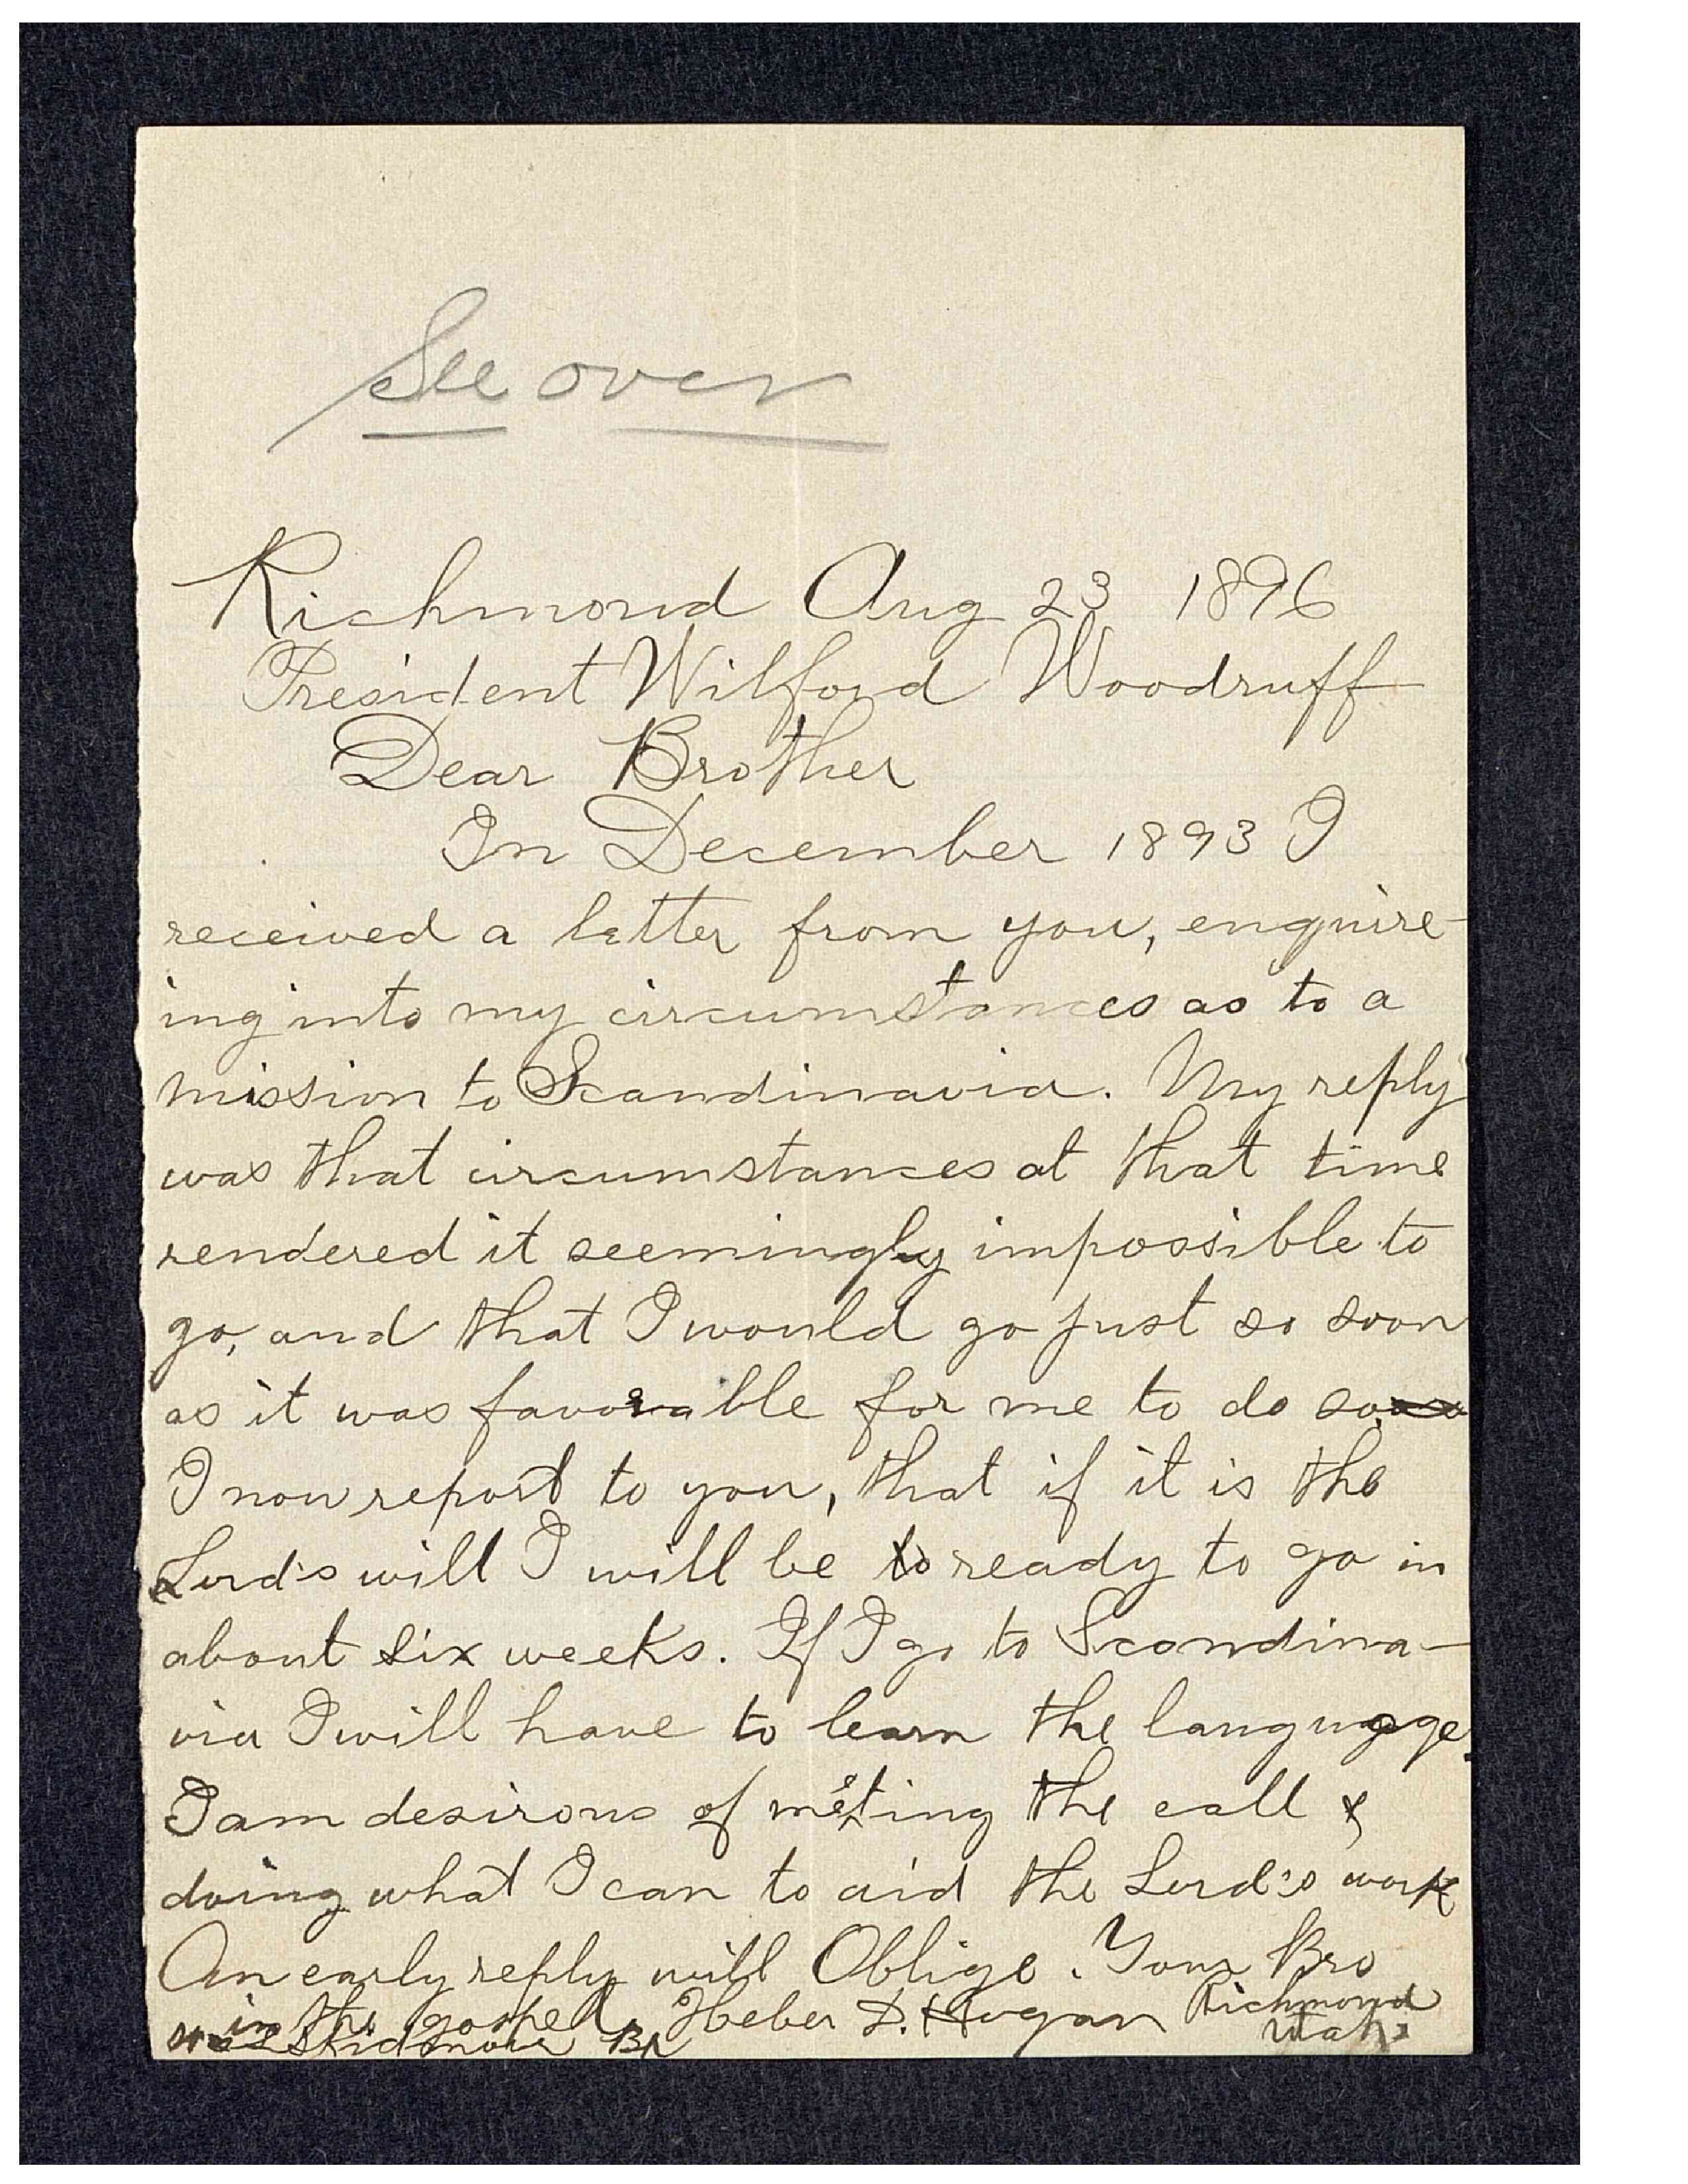 See over
Richmond Aug 23 1896
President Wilford Woodruff
Dear Brother
In December 1893 I
received a letter from you, enquire-
ing into my circumstances as to a
mission to Scandinavia. My reply
was that circumstances at that time
rendered it seemingly impossible to
go, and that I would go just so soon
as it was favorable for me to do so.
I now report to you, that if it is the
Lord's will I will be to ready to go in
about six weeks. If I go to Scandina-
via I will have to learn the language.
I am desirous of meeting the call &
doing what I can to aid the Lord's work
An early reply will Oblige. Your Bro
in the gospel, Heber D. Hogan Richmond
Skidmore Bp Utah